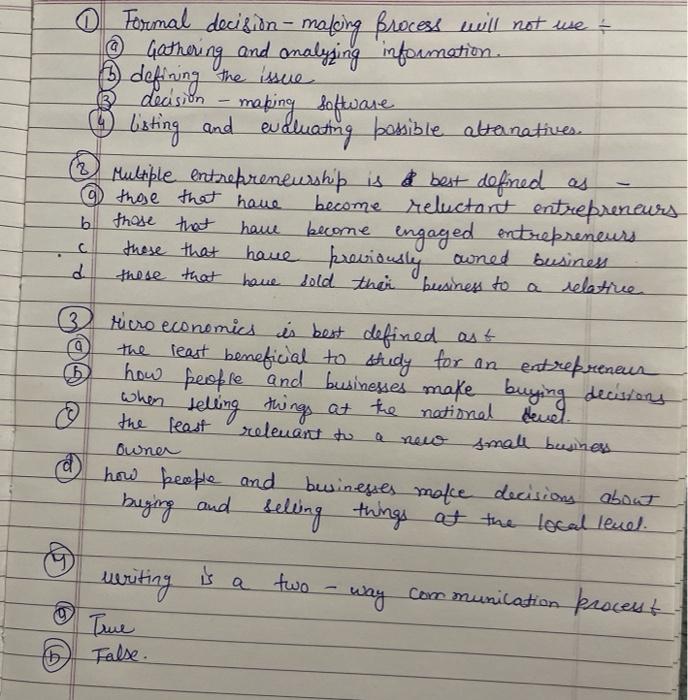 ① Formal decision-making process will not use ÷
ⓐ Gathering and analyzing information.
ⓑ defining the issue
③ decision - making software
④ listing and evaluating possible alternatives.
② Multiple entrepreneurship is best defined as -
ⓐ those that have become reluctant entrepreneurs
b those that have become engaged entrepreneurs
c those that have previously owned business
d those that have sold their business to a relative
③ Micro economics is best defined as ÷
ⓐ the least beneficial to study for an entrepreneur
ⓑ how people and businesses make buying decisions
when selling things at the national level.
ⓒ the least relevant to a new small business
owner
ⓓ how people and businesses make decisions about
buying and selling things at the local level.
④
writing is a two-way communication process ÷
ⓐ True
ⓑ False.